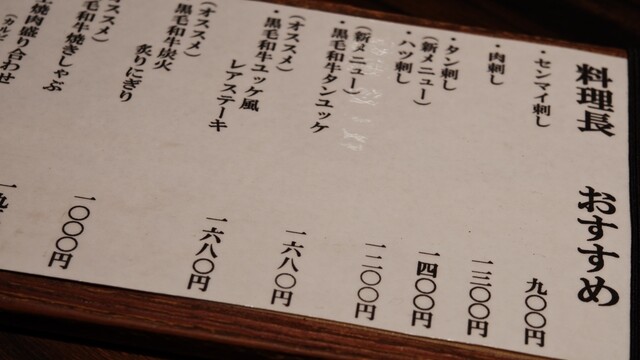 料理長 おすすめ
・センマイ刺し 九〇〇円
・肉刺し 一三〇〇円
・タン刺し 一四〇〇円
(新メニュー)
・ハツ刺し 一二〇〇円
(新メニュー)
・黒毛和牛タンユッケ 一六八〇円
(オススメ)
・黒毛和牛ユッケ風
レアステーキ 一六八〇円
(オススメ)
黒毛和牛炭火
炙りにぎり 一〇〇〇円
ススメ)
毛和牛焼きしゃぶ 一九
焼肉盛り合わせ